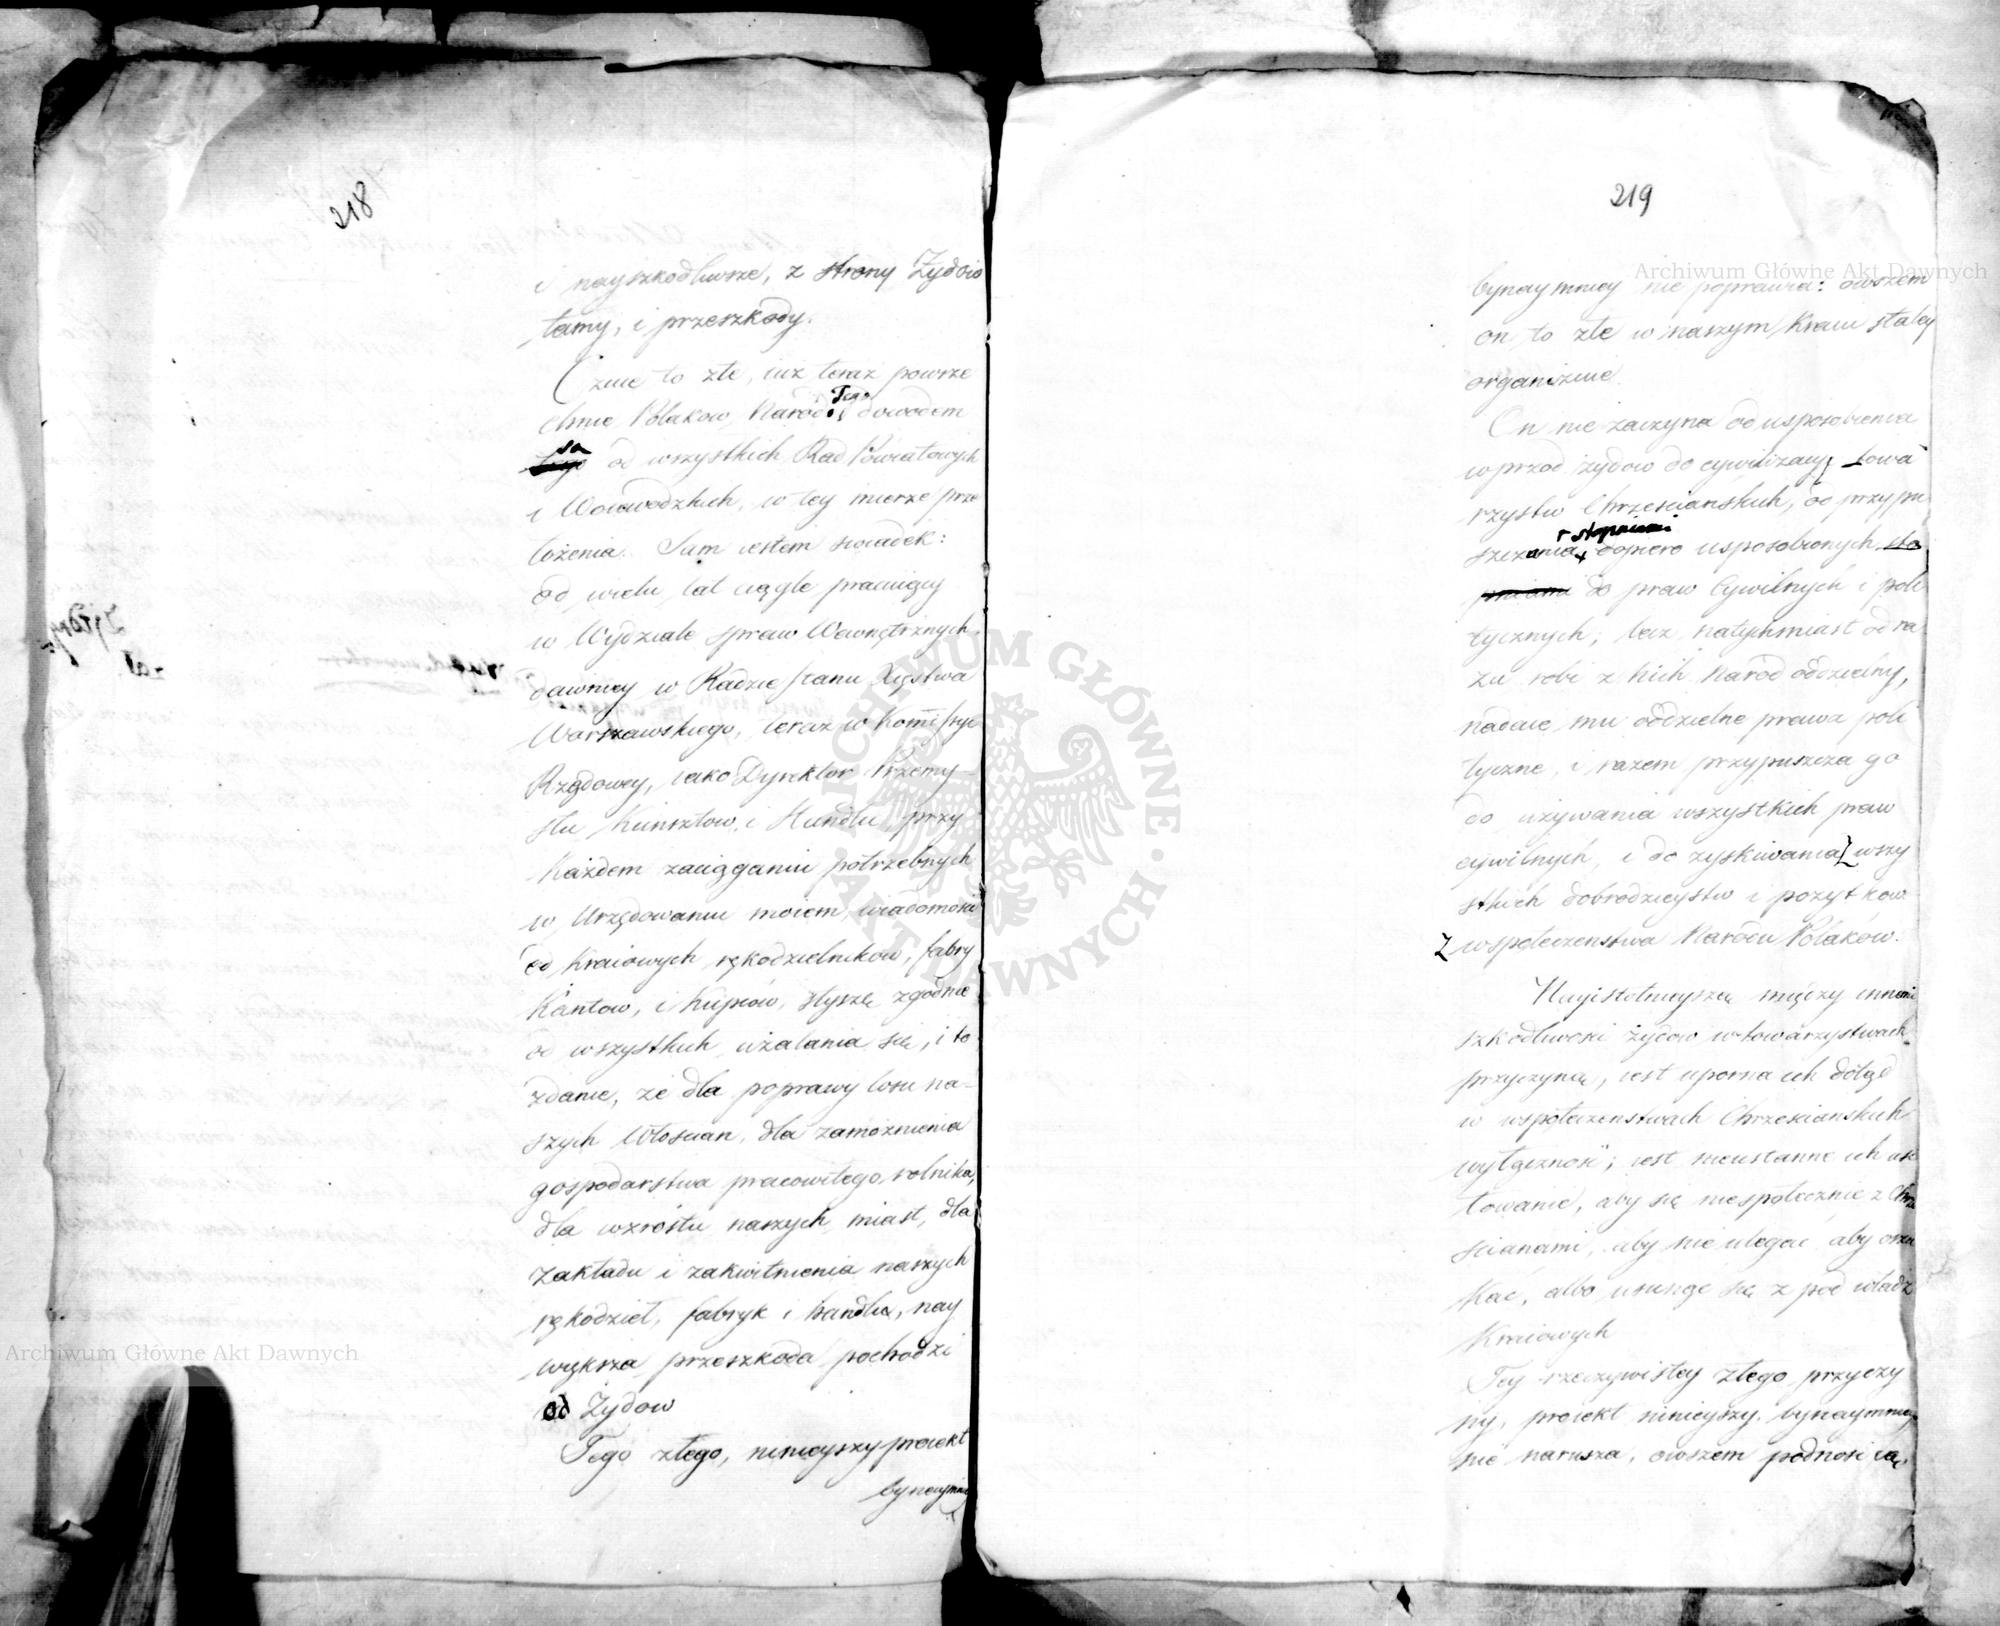 218
i nayszkodliwsze, z strony Żydow
tamy, i przeszkody.
Czuie to złe, iuż teraz powsze
chnie Polakow Narod: Tego dowodem
są od wszystkich Rad Powiatowych
i Woiewodzkich, w tey mierze prze
łożenia. Sam iestem swiadek:
od wielu lat ciągle pracuiący
w Wydziale spraw Wewnętrznych,
dawniey w Radzie Stanu Xięstwa
Warszawskiego, teraz w Kommissyi
Rządowey, iako Dyrektor Przemy-
słu Kunsztow, i Handlu, przy
każdem zaciąganiu potrzebnych
w Urzędowaniu moiem, wiadomosci
od kraiowych rękodzielnikow, fabry
kantow, i kupców, słyszę zgodnie
od wszystkich użalania się, i to
zdanie, że dla poprawy losu na-
szych Włoscian, dla zamożnienia
gospodarstwa pracowitego rolnika,
dla wzróstu naszych miast, dla
zakładu i zakwitnienia naszych
rękodzieł, fabryk i handlu, nay
większa przeszkoda pochodzi
od Żydow
Tego złego, ninieyszy proiekt
bynaymniey
219
bynaymniey nie poprawia: owszem
on to złe w naszym Kraiu staley
organizuie.
On nie zaczyna od usposobienia
wprzod żydow do cywilizacyi towa
rzystw Chrzescianskich, od przypu
szczania stopniami dopiero usposobionych
do praw Cywilnych i poli
tycznych; lecz natychmiast od ra
zu robi z nich Narod oddzielny,
nadaie mu oddzielne prawa poli
tyczne, i razem przypuszcza go
do używania wszystkich praw
cywilnych, i do zyskiwania wszy
stkich dobrodzieystw i pożytkow
z współeczenstwa Narodu Polaków.
Nayistotnieyszą między innemi
szkodliwosci żydow w towarzystwach
przyczyną, iest uporna ich dotąd
w współeczenstwach Chrzescianskich
wyłączność; iest nieustanne ich usi
łowanie, aby się niespołecznić z Chrze
scianami, aby nie ulegać, aby oszu
kać, albo usunąć się z pod władz
Kraiowych
Tey rzeczywistey złego przyczy
ny, proiekt ninieyszy, bynaymniey
nie narusza, owszem podnosi ią,
Archiwum Główne Akt Dawnych
Archiwum Główne Akt Dawnych
ARCHIWUM GŁÓWNE · AKT DAWNYCH ·